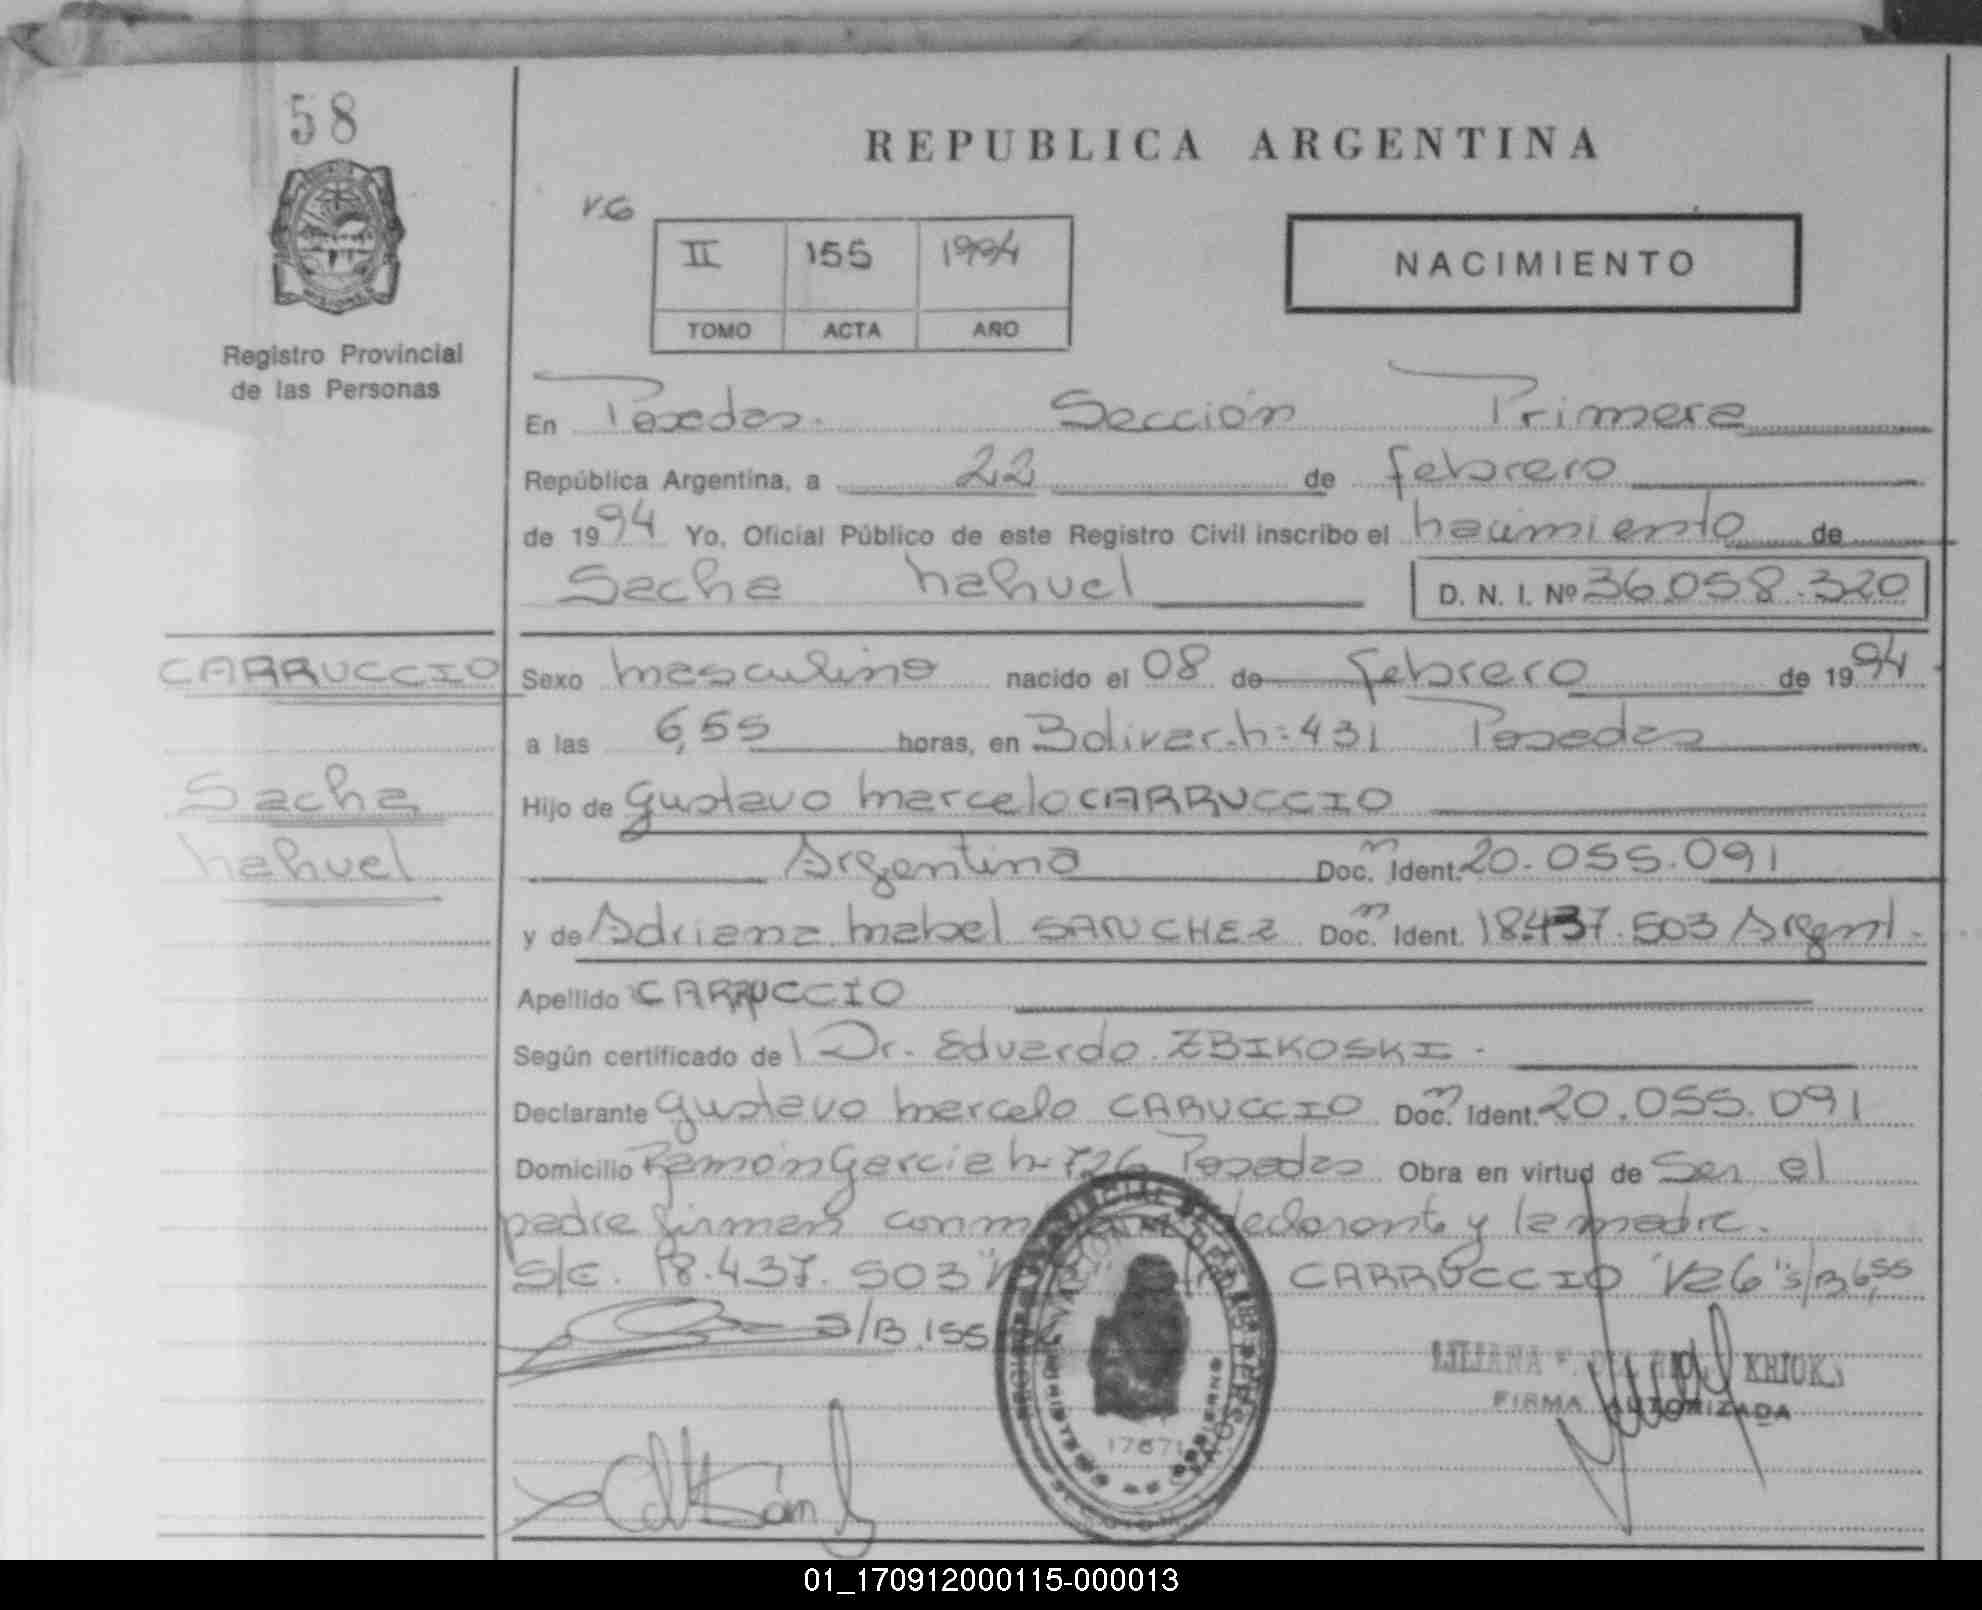 58
REPUBLICA ARGENTINA
V.G
II 155 1994
TOMO ACTA AÑO
NACIMIENTO
Registro Provincial
de las Personas
En Posadas. Sección Primera
República Argentina, a 22 de febrero
de 1994 Yo, Oficial Público de este Registro Civil inscribo el nacimiento de
Sacha nahuel D. N. I. Nº 36.058.320
CARRUCCIO
Sexo masculino nacido el 08 de febrero de 1994
a las 6,55 horas, en Bolivar n: 431 Posadas
Sacha
Hijo de Gustavo marcelo CARRUCCIO
nahuel
Argentino Doc. n Ident. 20.055.091
y de Adriana mabel SANCHEZ Doc. n Ident. 18.437.503 Argent.
Apellido CARRUCCIO
Según certificado de l Dr. Eduardo ZBIKOSKI.
Declarante Gustavo marcelo CARUCCIO Doc. n Ident. 20.055.091
Domicilio Ramón Garcia n- 726 Posadas Obra en virtud de Ser el
padre firman conm declarante y la madre.
S/C. 18.437.503 CARRUCCIO "V26" S/B 6,55
S/B.155
LILIANA KHIUK
FIRMA AUTORIZADA
17671
01_170912000115-000013